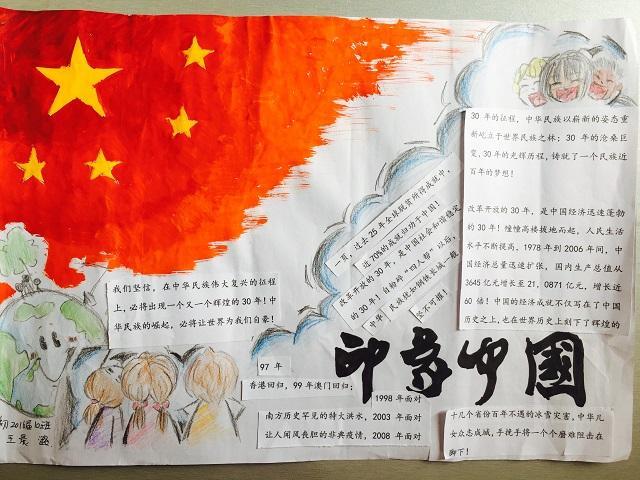 30 年的征程，中华民族以崭新的姿态重
新屹立于世界民族之林；30 年的沧桑巨
变，30 年的光辉历程，铸就了一个民族近
百年的梦想！
改革开放的 30 年，是中国经济迅速蓬勃
的 30 年！幢幢高楼拔地而起，人民生活
水平不断提高，1978 年到 2006 年间，中
国经济总量迅速扩张，国内生产总值从
3645 亿元增长至 21，0871 亿元，增长近
60 倍！中国的经济成就不仅写在了中国
历史之上，也在世界历史上刻下了辉煌的
一页，过去 25 年全球脱贫所得成就中，
近 70%的成就归功于中国！
改革开放的 30 年，是中国社会和谐稳定
的 30 年！自粉碎“四人帮”以后，
中华民族优如钢铁长城一般
坚不可摧！
我们坚信，在中华民族伟大复兴的征程
上，必将出现一个又一个辉煌的 30 年！中
华民族的崛起，必将让世界为我们自豪！
97 年
香港回归，99 年澳门回归；
1998 年面对
南方历史罕见的特大洪水，2003 年面对
让人闻风丧胆的非典疫情，2008 年面对
印象中国
十几个省份百年不遇的冰雪灾害，中华儿
女众志成城，手挽手将一个个磨难阻击在
脚下！